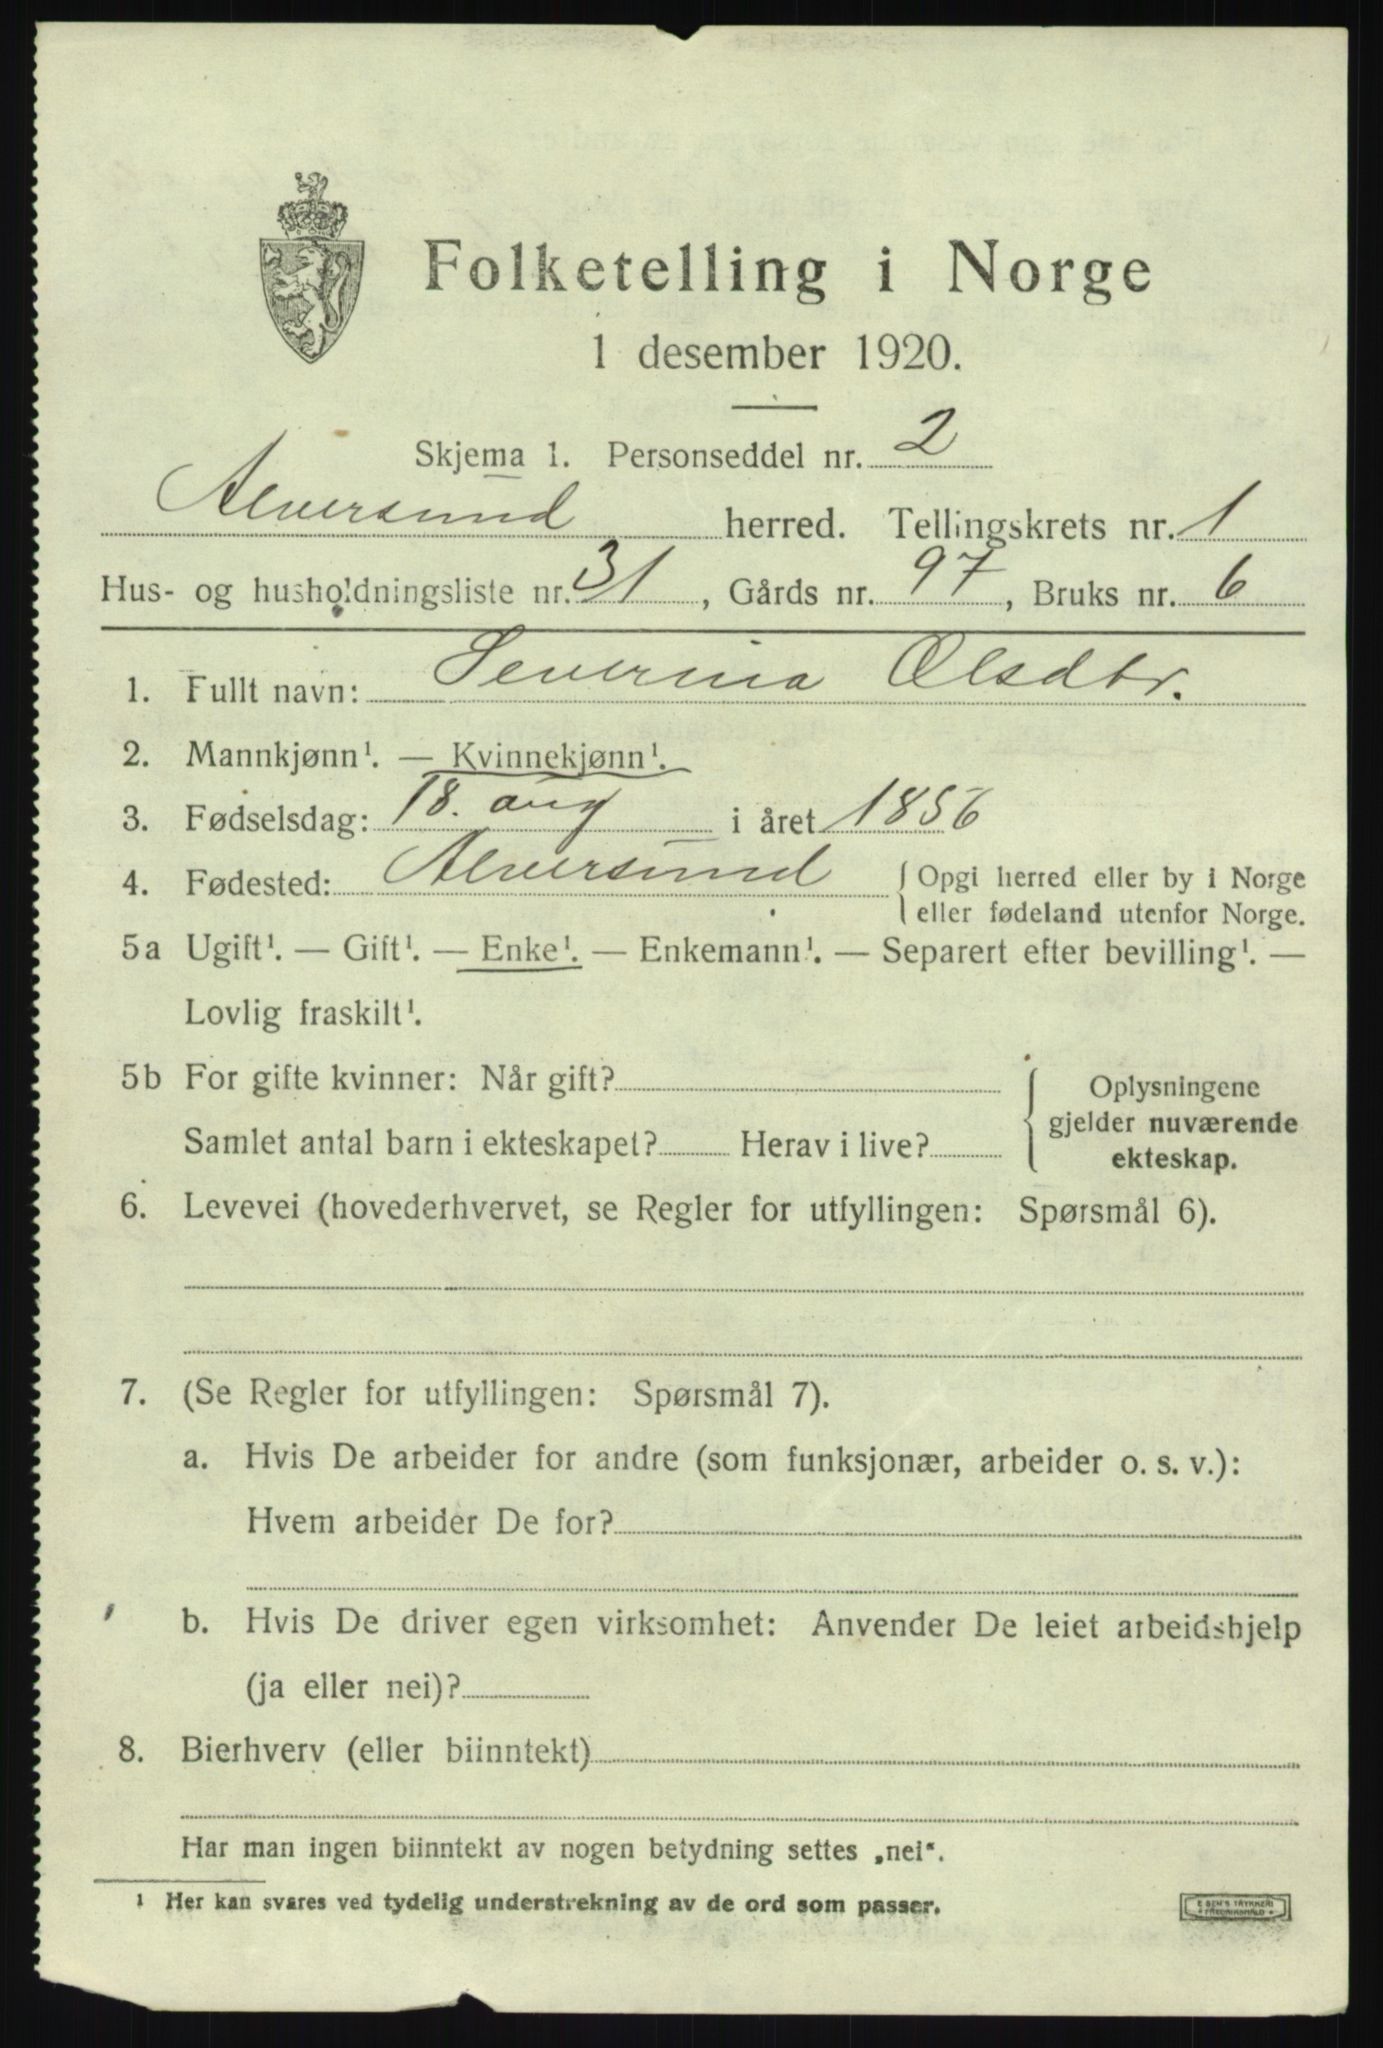 Folketelling i Norge
1 desember 1920.
Skjema 1. Personseddel nr. 2
Alversund herred. Tellingskrets nr. 1
Hus- og husholdningsliste nr. 31, Gårds nr. 97, Bruks nr. 6
1. Fullt navn: Severina Olsdtr.
2. Mannkjønn¹. — Kvinnekjønn¹.
3. Fødselsdag: 18. aug i året 1856
4. Fødested: Alversund { Opgi herred eller by i Norge
eller fødeland utenfor Norge.
5a Ugift¹. — Gift¹. — Enke¹. — Enkemann¹. — Separert efter bevilling¹. —
Lovlig fraskilt¹.
5b For gifte kvinner: Når gift? { Oplysningene
gjelder nuværende
Samlet antal barn i ekteskapet? Herav i live? ekteskap.
6. Levevei (hovederhvervet, se Regler for utfyllingen: Spørsmål 6).
7. (Se Regler for utfyllingen: Spørsmål 7).
a. Hvis De arbeider for andre (som funksjonær, arbeider o. s. v.):
Hvem arbeider De for?
b. Hvis De driver egen virksomhet: Anvender De leiet arbeidshjelp
(ja eller nei)?
8. Bierhverv (eller biinntekt)
Har man ingen biinntekt av nogen betydning settes „nei“.
¹ Her kan svares ved tydelig understrekning av de ord som passer.